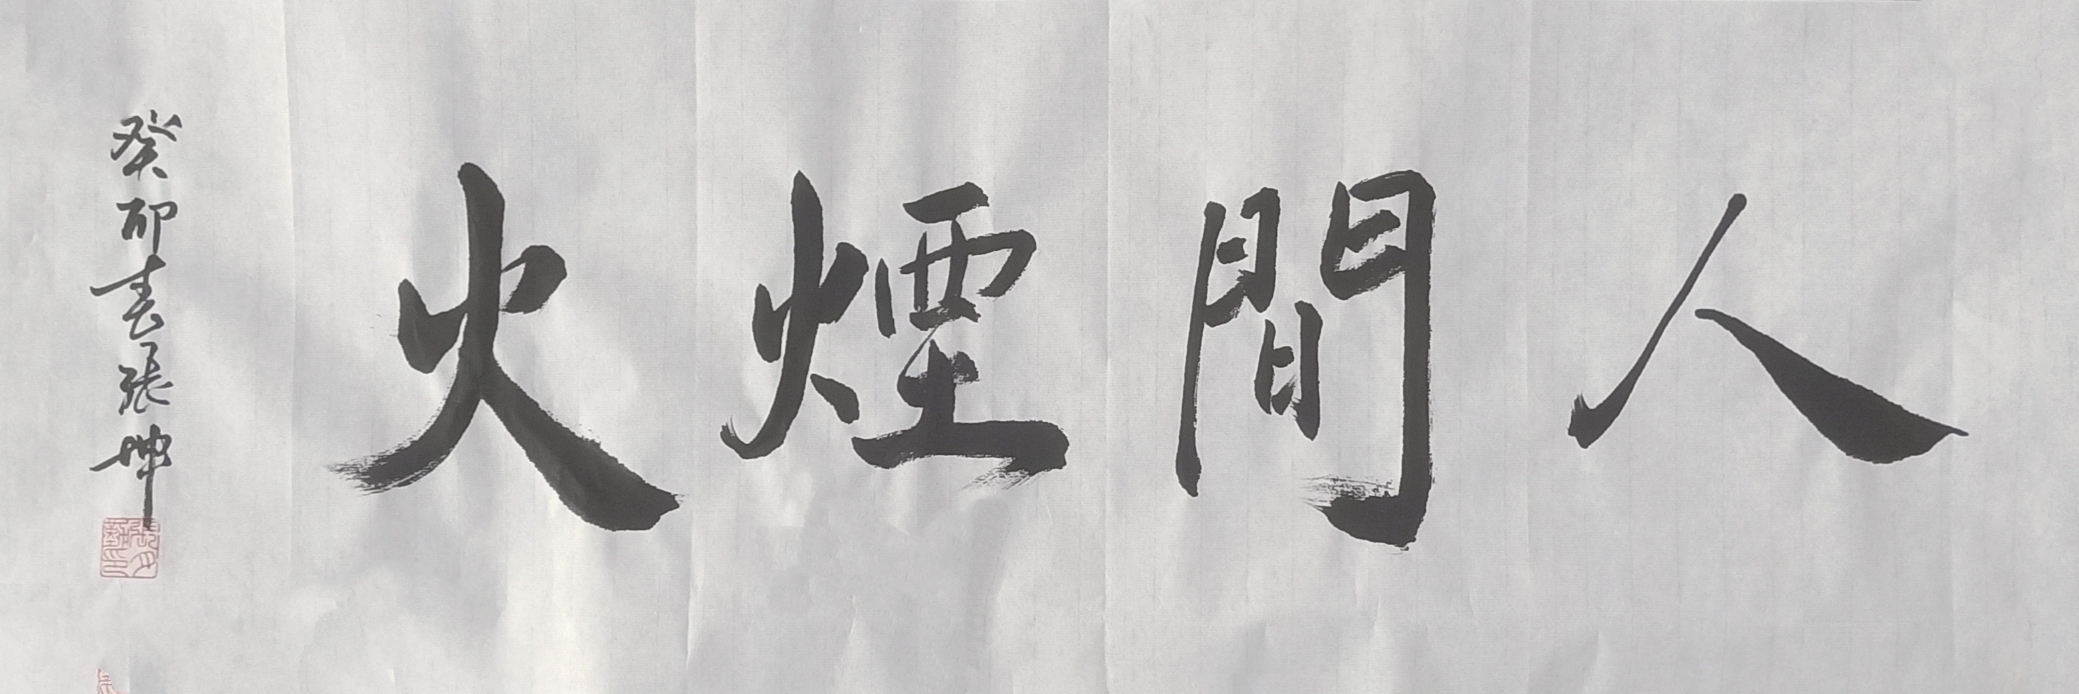 人間煙火
癸卯春張坤